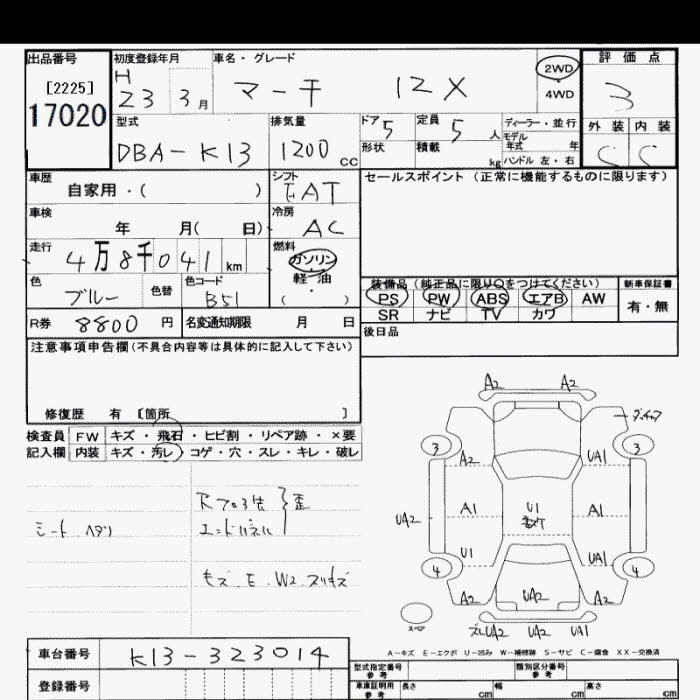 出品番号 初度登録年月 車名・グレード 評価点
[2225] H 23 3月 マーチ 12X 2WD 4WD 3
17020 型式 排気量 ドア 5 定員 5人 ディーラー・並行 外装 内装
DBA-K13 1200 CC 形状 積載 kg モデル年式 年 ハンドル 左・右 C C
車歴 シフト セールスポイント(正常に機能するものに限ります)
自家用・( ) FAT
車検 冷房
年 月( 日) AC
走行 燃料
4万8千041km ガソリン
軽・油
色 色替 色コード ( ) 装備品(純正品に限り○をつけてください) 新車保証書
ブルー B51 PS PW ABS エアB AW 有・無
SR ナビ TV カワ
R券 8800 円 名変通知期限 月 日 後日品
注意事項申告欄(不具合内容等は具体的に記入して下さい)
修復歴 有 〔箇所 〕
検査員 FW キズ・飛石・ヒビ割・リペア跡・×要
記入欄 内装 キズ・汚レ・コゲ・穴・スレ・キレ・破レ
A2 A2
3 A2 UA1 3
シートヘタリ エンドパネル 歪
UA2 A1 U1 A1
U1 UA1
4 4
キズ E W2 スリキズ
A2 UA2 A2
スペア UA2 UA2 UA1
A-キズ E-エクボ U-凹み W-補修跡 S-サビ C-腐食 XX-交換済
車台番号 K13-323014
型式指定番号 参考 類別区分番号 参考
登録番号 車庫証明用 参考 長さ cm 幅 cm 高さ cm